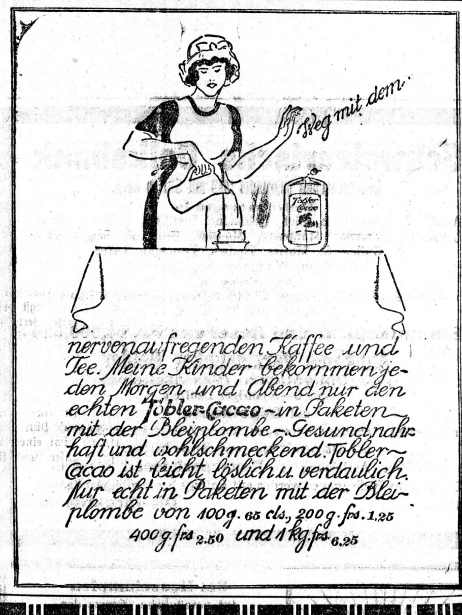 Weg mit dem
Tobler
Cacao
nervenaufregenden Kaffee und
Tee. Meine Kinder bekommen je-
den Morgen und Abend nur den
echten Tobler-Cacao - in Paketen
mit der Bleiplombe - Gesund, nahr-
haft und wohlschmeckend. Tobler-
Cacao ist leicht löslich u. verdaulich.
Nur echt in Paketen mit der Blei-
plombe von 100 g. 65 cts., 200 g. frs 1.25
400 g. frs 2.50 und 1 kg frs 6.25